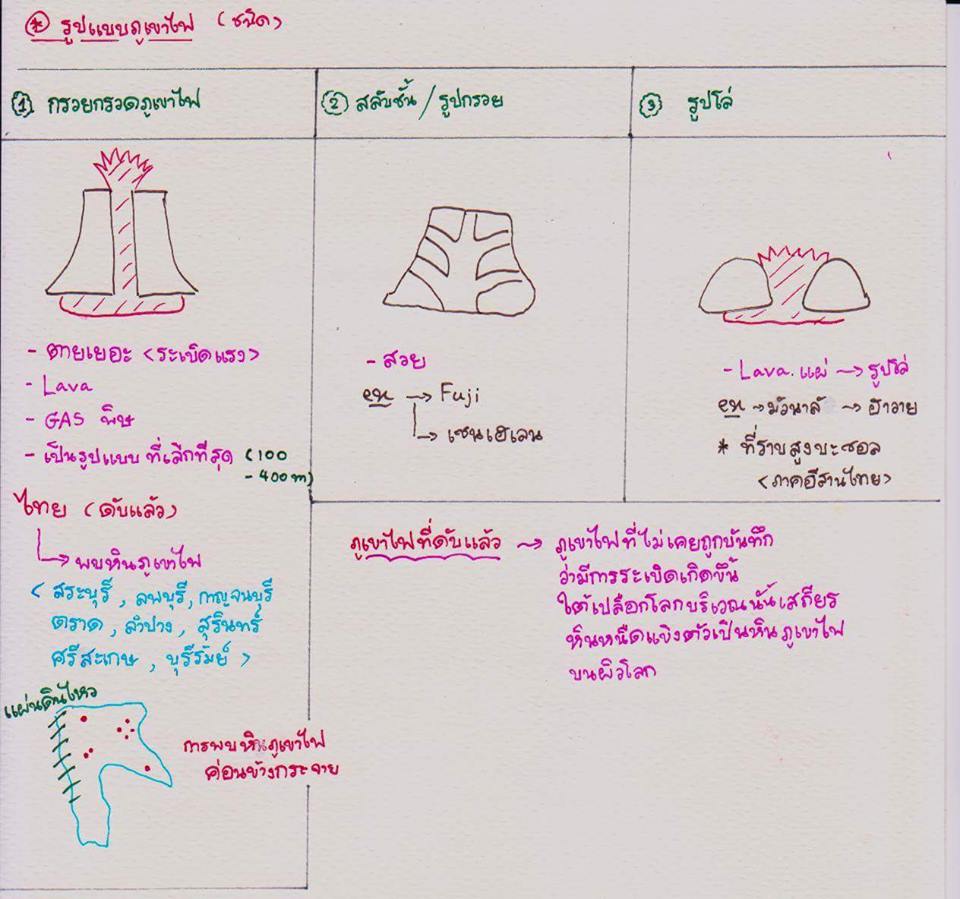 * รูปแบบภูเขาไฟ (ชนิด)
① กรวยกรวดภูเขาไฟ
- ตายเยอะ <ระเบิดแรง>
- Lava
- GAS พิษ
- เป็นรูปแบบที่เล็กที่สุด (100
- 400 m)
ไทย (ดับแล้ว)
→ พบหินภูเขาไฟ
< สระบุรี, ลพบุรี, กาญจนบุรี
ตราด, ลำปาง, สุรินทร์
ศรีสะเกษ, บุรีรัมย์ >
แผ่นดินไหว
การพบหินภูเขาไฟ
ค่อนข้างกระจาย
② สลับชั้น / รูปกรวย
- สวย
ex → Fuji
→ เซนเฮเลน
③ รูปโล่
- Lava แผ่ → รูปโล่
ex → มัวนาลัว → ฮาวาย
* ที่ราบสูงบะซอล
<ภาคอีสานไทย>
ภูเขาไฟที่ดับแล้ว → ภูเขาไฟที่ไม่เคยถูกบันทึก
ว่ามีการระเบิดเกิดขึ้น
ใต้เปลือกโลกบริเวณนั้นเสถียร
หินหนืดแข็งตัวเป็นหินภูเขาไฟ
บนผิวโลก